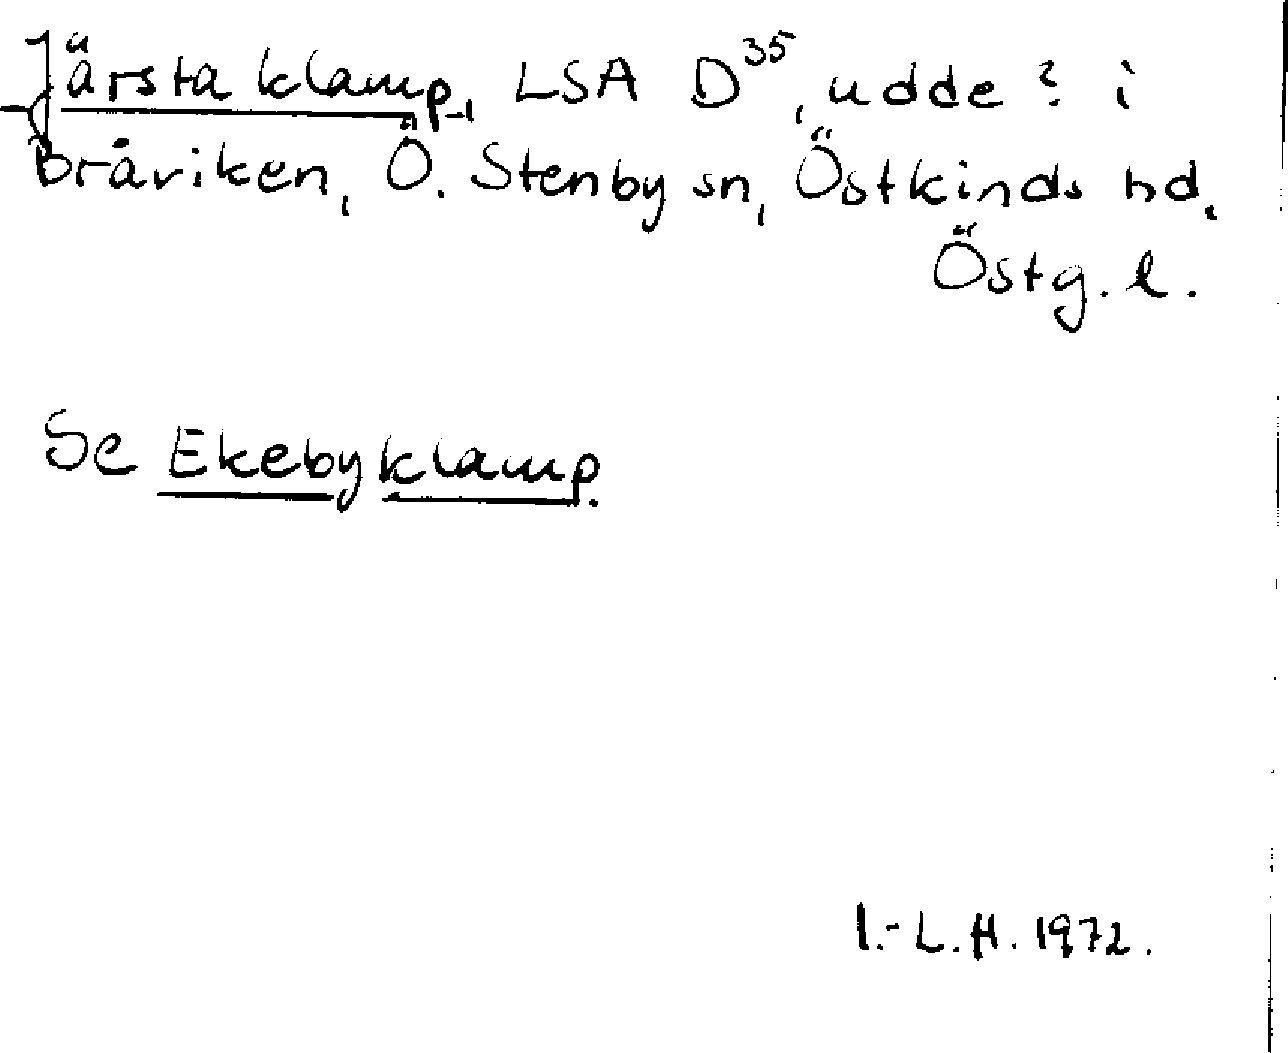 Järsta klamp, LSA D35, udde? i
Bråviken, Ö. Stenby sn, Östkinds hd,
Östg. l.
Se Ekeby klamp.
I.-L.H. 1972.